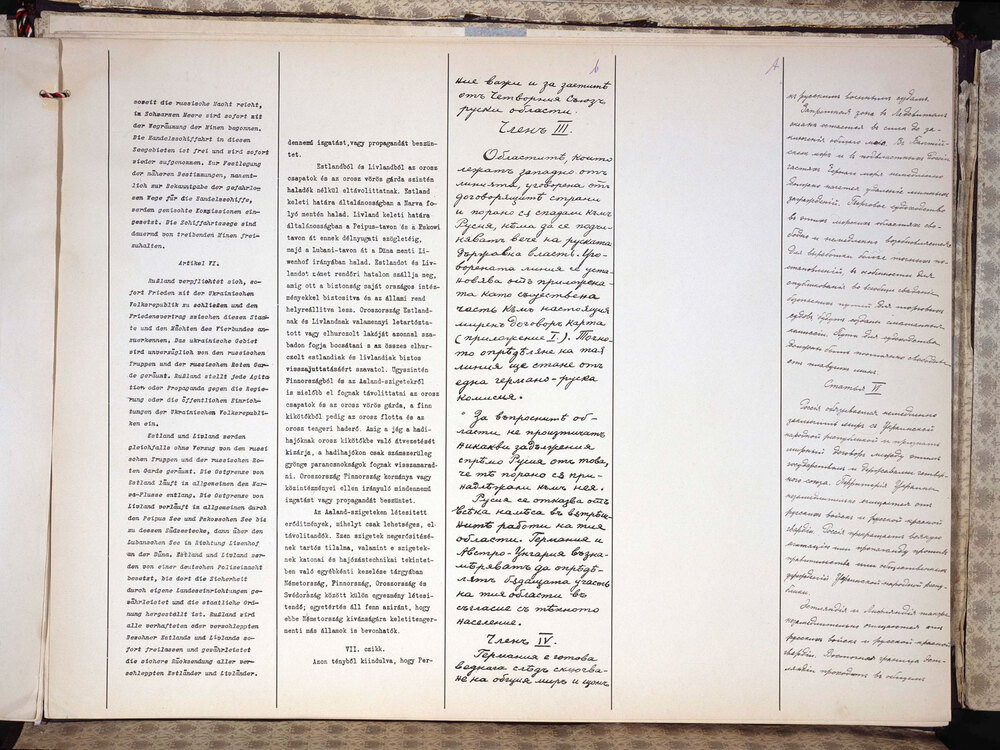 soweit die russische Macht reicht,
im Schwarzen Meere wird sofort mit
der Wegräumung der Minen begonnen.
Die Handelsschiffahrt in diesen
Seegebieten ist frei und wird sofort
wieder aufgenommen. Zur Festlegung
der näheren Bestimmungen, nament-
lich zur Bekanntgabe der gefahrlo-
sen Wege für die Handelsschiffe,
werden gemischte Kommissionen ein-
gesetzt. Die Schiffahrtswege sind
dauernd von treibenden Minen frei-
zuhalten.
Artikel VI.
Rußland verpflichtet sich, so-
fort Frieden mit der Ukrainischen
Volksrepublik zu schließen und den
Friedensvertrag zwischen diesem Staa-
te und den Mächten des Vierbundes an-
zuerkennen. Das ukrainische Gebiet
wird unverzüglich von den russischen
Truppen und der russischen Roten Gar-
de geräumt. Rußland stellt jede Agita
tion oder Propaganda gegen die Regie-
rung oder die öffentlichen Einrich-
tungen der Ukrainischen Volksrepubli-
ken ein.
Estland und Livland werden
gleichfalls ohne Verzug von den russi
schen Truppen und der russischen Ro-
ten Garde geräumt. Die Ostgrenze von
Estland läuft im allgemeinen dem Nar-
wa-Flusse entlang. Die Ostgrenze von
Livland verläuft im allgemeinen durch
den Peipus See und Pskowschen See bis
zu dessen Südwestecke, dann über den
Lubanschen See in Richtung Lisenhof
an der Düna. Estland und Livland wer-
den von einer deutschen Polizeimacht
besetzt, bis dort die Sicherheit
durch eigene Landeseinrichtungen ge-
währleistet und die staatliche Ord-
nung hergestellt ist. Rußland wird
alle verhafteten oder verschleppten
Bewohner Estlands und Livlands so-
fort freilassen und gewährleistet
die sichere Rücksendung aller ver-
schleppten Estländer und Livländer.
dennemü izgatást,vagy propagandát beszün-
tet.
Esztlandból és Livlandból az orosz
csapatok és az orosz vörös gárda szintén
haladék nélkül eltávolittatnak. Estland
keleti határa általánosságban a Narva fo-
lyó mentén halad. Livland keleti határa
általánosságban a Peipus-tavon és a Pskowi
tavon át ennek délnyugati szögletéig,
majd a Lubani-tavon át a Düna menti Li-
wenhof irányában halad. Estlandot és Liv-
landot német rendőri hatalom szállja meg,
amig ott a biztonság saját országos intéz-
ményekkel biztositva és az állami rend
helyreállitva lesz. Oroszország Estland-
nak és Livlandnak valamennyi letartózta-
tott vagy elhurcolt lakóját azonnal sza-
badon fogja bocsátani és az összes elhur-
colt estlandiak és livlandiak biztos
visszajuttatásáért szavatol. Ugyszintén
Finnországból és az Aaland-szigetekről
is mielőbb el fognak távolittatni az orosz
csapatok és az orosz vörös gárda, a finn
kikötőkből pedig az orosz flotta és az
orosz tengeri haderő. Amig a jég a hadi-
hajóknak orosz kikötőkbe való átvezetését
kizárja, a hadihajókon csak számszerüleg
gyönge parancsnokságok fognak visszamarad-
ni. Oroszország Finnország kormánya vagy
közintézményei ellen irányuló mindennemü
izgatást vagy propagandát beszüntet.
Az Aaland-szigeteken létesitett
erőditmények, mihelyt csak lehetséges, el-
távolitandók. Ezen szigetek megerősitésé-
nek tartós tilalma, valamint e szigetek-
nek katonai és hajózástechnikai tekintet-
ben való egyébkénti kezelése tárgyában
Németország, Finnország, Oroszország és
Svédország között külön egyezmény létesi-
tendő; egyetértés áll fenn aziránt, hogy
ebbe Németország kivánságára keletitenger-
menti más államok is bevonhatók.
VII. czikk.
Azon tényből kiindulva, hogy Per-
ние важи и за заетитѣ
отъ Четворния Съюзъ
руски области.
Членъ III.
Областитѣ, които
лежатъ западно отъ
линията, уговорена отъ
договорящитѣ страни
и порано сѫ спадали къмъ
Русия, нѣма да се подчи-
няватъ вече на руската
държавна власть. Уго-
ворената линия се уста-
новява отъ приложена-
та като съществена
часть къмъ настоящия
миренъ договоръ карта
(приложение I.). Точно-
то опрѣдѣляне на тая
линия ще стане отъ
една германо-руска
комисия.
За въпроснитѣ об-
ласти не произтичатъ
никакви задължения
спрѣмо Русия отъ това,
че тѣ порано сѫ при-
надлежали къмъ нея.
Русия се отказва отъ
всѣка намѣса въ вѫтрѣш-
нитѣ работи на тия
области. Германия и
Австро-Унгария възна-
мѣряватъ да опрѣдѣ-
лятъ бѫдащата участь
на тия области въ
съгласие съ тѣхното
население.
Членъ IV.
Германия е готова
веднага слѣдъ сключва-
не на общия миръ и щомъ
Запретная зона в Ледовитом
океане остается в силе до за-
ключения общаго мира.
Статья VI
Россия обязывается немедленно
заключить мир с Украинской
народной республикой и признать
мирный договор между этим
государством и державами четвер-
ного союза. Территория Украины
незамедлительно очищается от
русских войск и русской красной
гвардии. Россия прекращает всякую
агитацию или пропаганду против
правительства или общественных
учреждений Украинской народной респу-
блики.
Эстляндия и Лифляндия также
незамедлительно очищаются от
русских войск и русской красной
гвардии. Восточная граница Эст-
ляндии проходит в общем